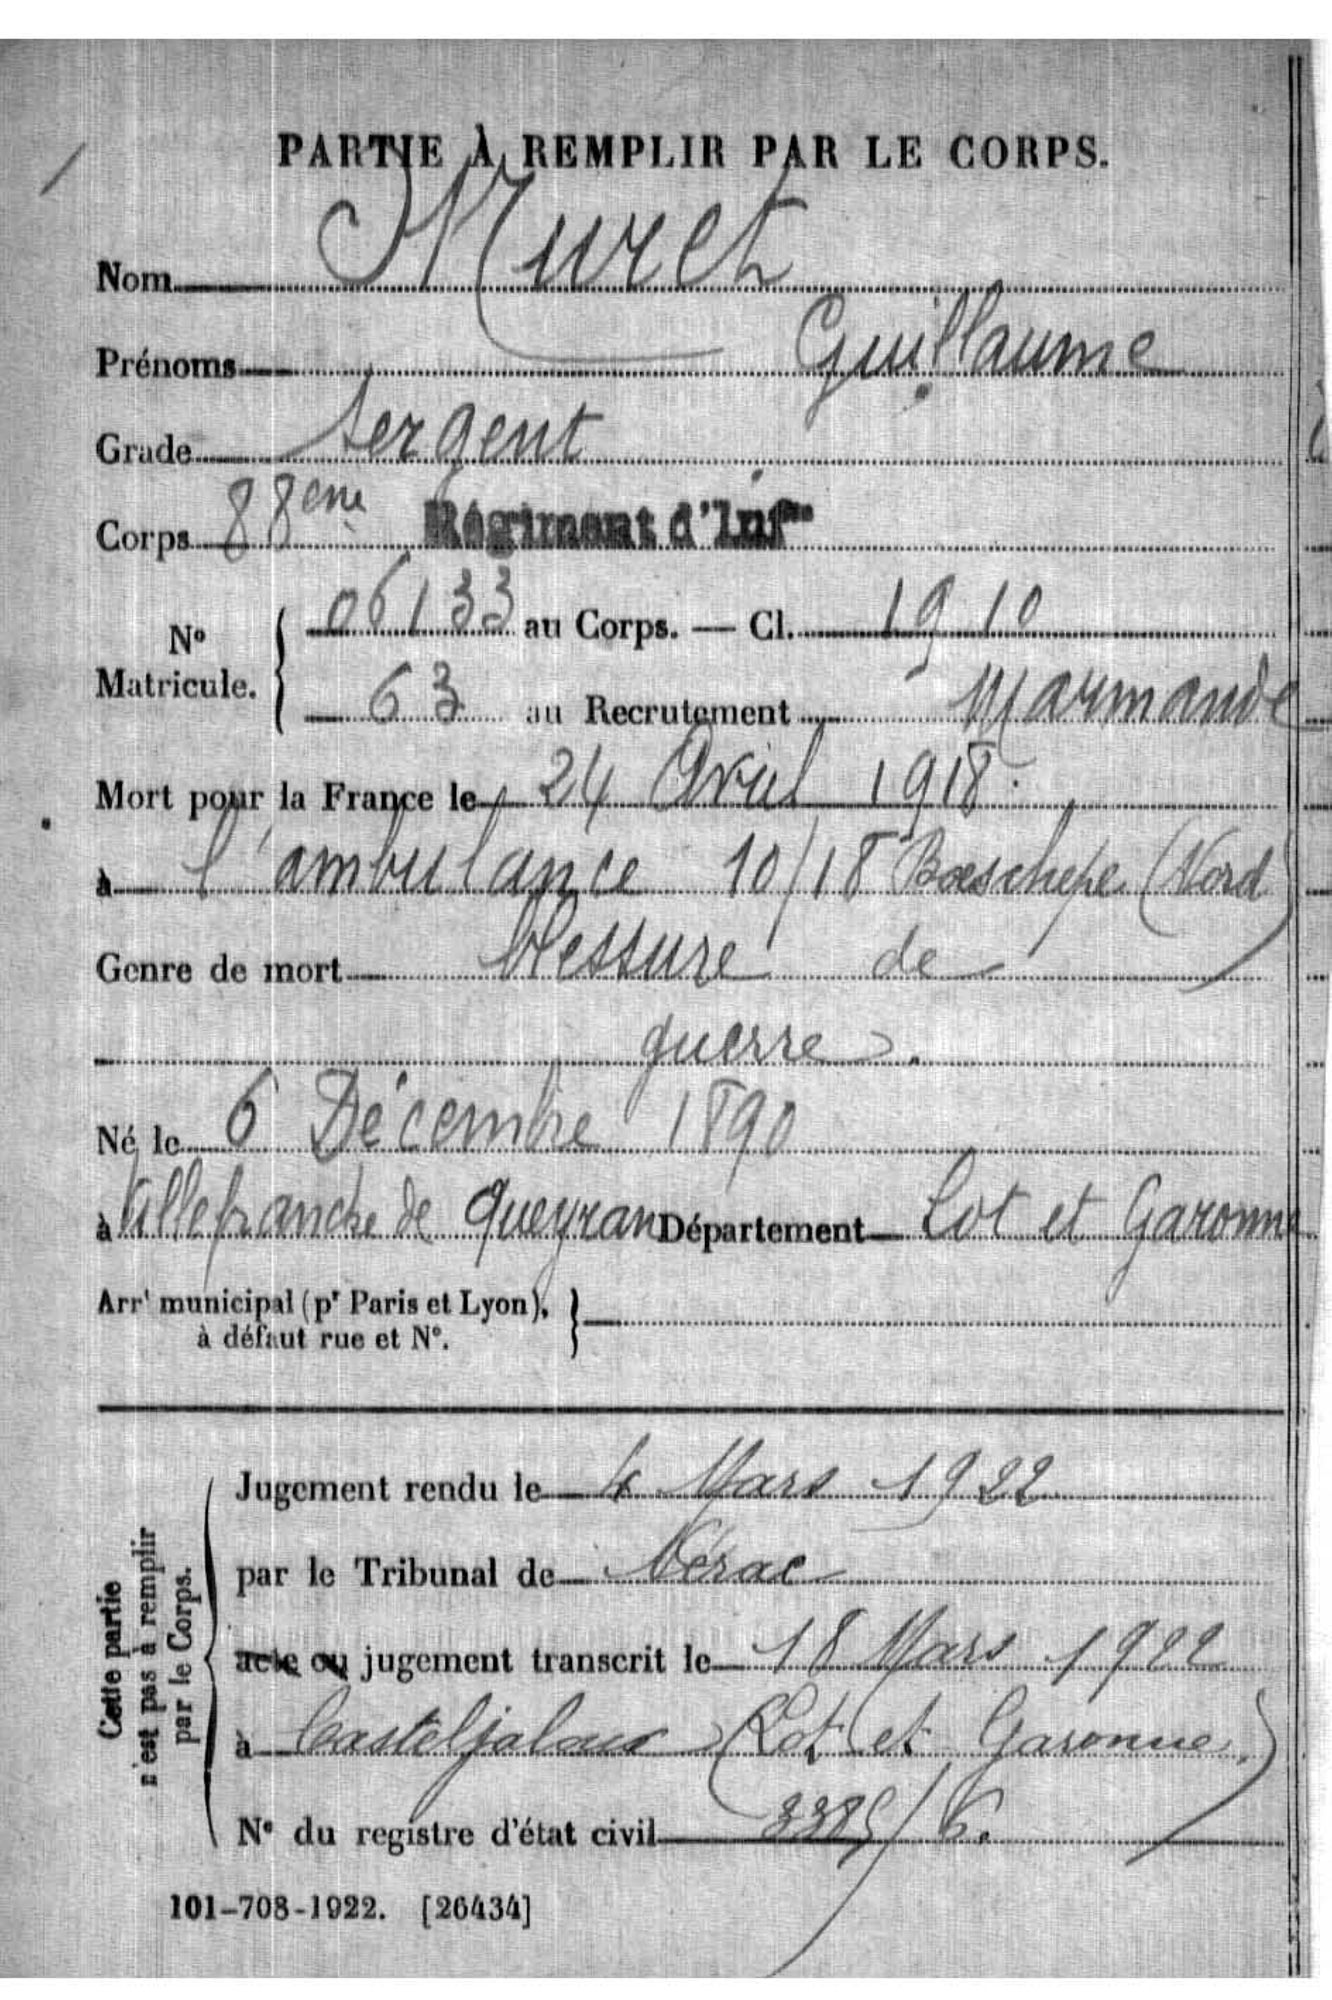 PARTIE À REMPLIR PAR LE CORPS.
Nom Muret
Prénoms Guillaume
Grade Sergent
Corps 88ème Régiment d'Infie
N° Matricule. { 06133 au Corps. — Cl. 1910
63 au Recrutement Marmande
Mort pour la France le 24 Avril 1918.
à l'ambulance 10/18 Boeschepe (Nord)
Genre de mort blessure de
guerre.
Né le 6 Décembre 1890
à Villefranche de Queyran Département Lot et Garonne
Arrt municipal (pr Paris et Lyon), }
à défaut rue et N°.
Cette partie
n'est pas à remplir
par le Corps.
Jugement rendu le 4 Mars 1922
par le Tribunal de Nérac
acte ou jugement transcrit le 18 Mars 1922
à Casteljaloux (Lot et Garonne.)
N° du registre d'état civil /6.
101-708-1922. [26434]